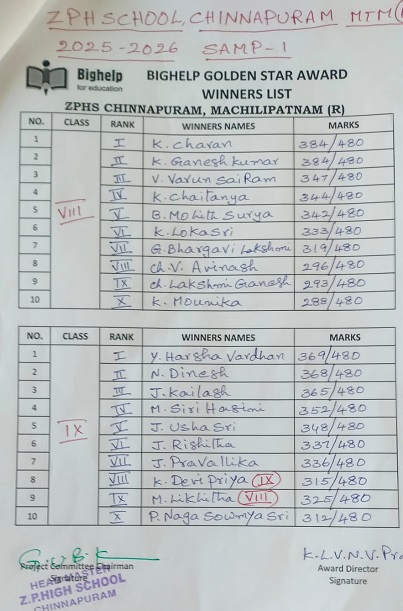 ZPH SCHOOL, CHINNAPURAM MTM(
2025-2026 SAMP-1
Bighelp
for education
BIGHELP GOLDEN STAR AWARD
WINNERS LIST
ZPHS CHINNAPURAM, MACHILIPATNAM (R)
NO. CLASS RANK WINNERS NAMES MARKS
1 I K. Charan 384/480
2 II K. Ganesh kumar 384/480
3 III V. Varun Sai Ram 347/480
4 IV K. Chaitanya 344/480
5 VIII V B. Mohith Surya 342/480
6 VI K. Lokasri 333/480
7 VII G. Bhargavi Lakshmi 319/480
8 VIII Ch. V. Avinash 296/480
9 IX Ch. Lakshmi Ganesh 293/480
10 X K. Mounika 288/480
NO. CLASS RANK WINNERS NAMES MARKS
1 I Y. Harsha Vardhan 369/480
2 II N. Dinesh 368/480
3 III J. Kailash 365/480
4 IV M. Siri Hasini 352/480
5 IX V J. Usha Sri 348/480
6 VI J. Rishitha 337/480
7 VII J. Pravallika 336/480
8 VIII K. Devi Priya IX 315/480
9 IX M. Likhitha VIII 325/480
10 X P. Naga Sowmya Sri 312/480
K.L.V.N.V.Pra
Project Committee Chairman
Signature
Award Director
Signature
HEAD MASTER
Z.P.HIGH SCHOOL
CHINNAPURAM